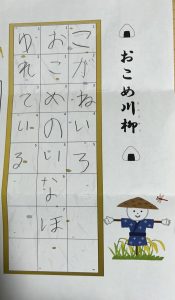 おこめ川柳
こがねいろ
おこめのいなほ
ゆれている